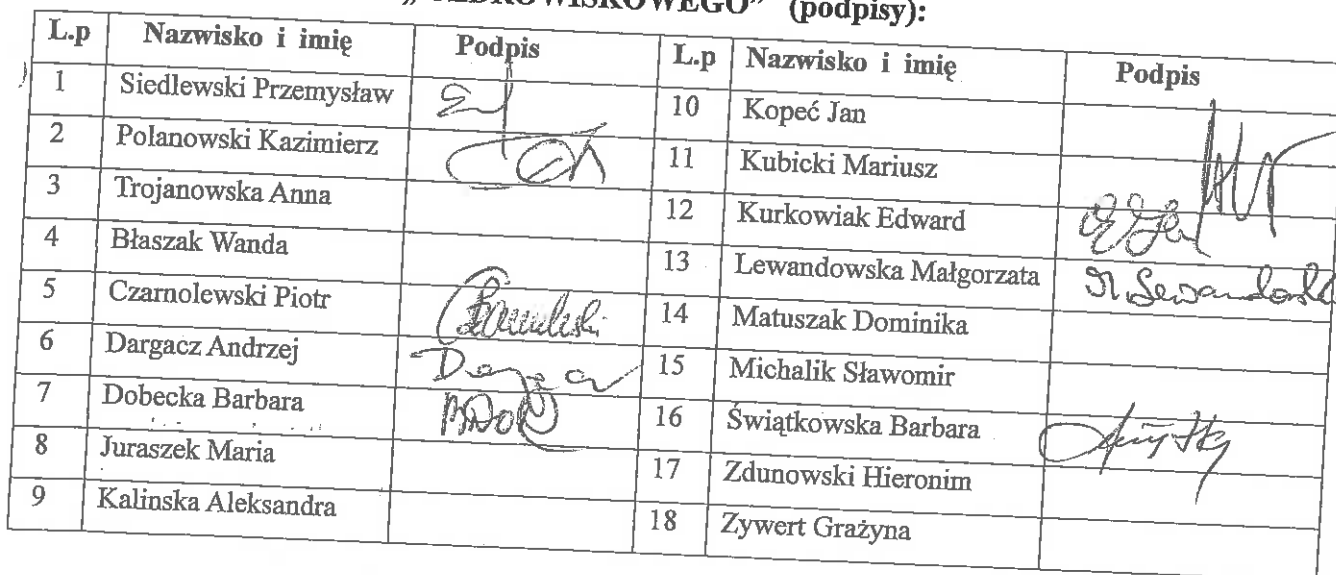 (podpisy):
L.p Nazwisko i imię Podpis L.p Nazwisko i imię Podpis
1 Siedlewski Przemysław 10 Kopeć Jan
2 Polanowski Kazimierz 11 Kubicki Mariusz
3 Trojanowska Anna 12 Kurkowiak Edward
4 Błaszak Wanda 13 Lewandowska Małgorzata M. Lewandowska
5 Czarnolewski Piotr 14 Matuszak Dominika
6 Dargacz Andrzej 15 Michalik Sławomir
7 Dobecka Barbara 16 Świątkowska Barbara
8 Juraszek Maria 17 Zdunowski Hieronim
9 Kalinska Aleksandra 18 Zywert Grażyna